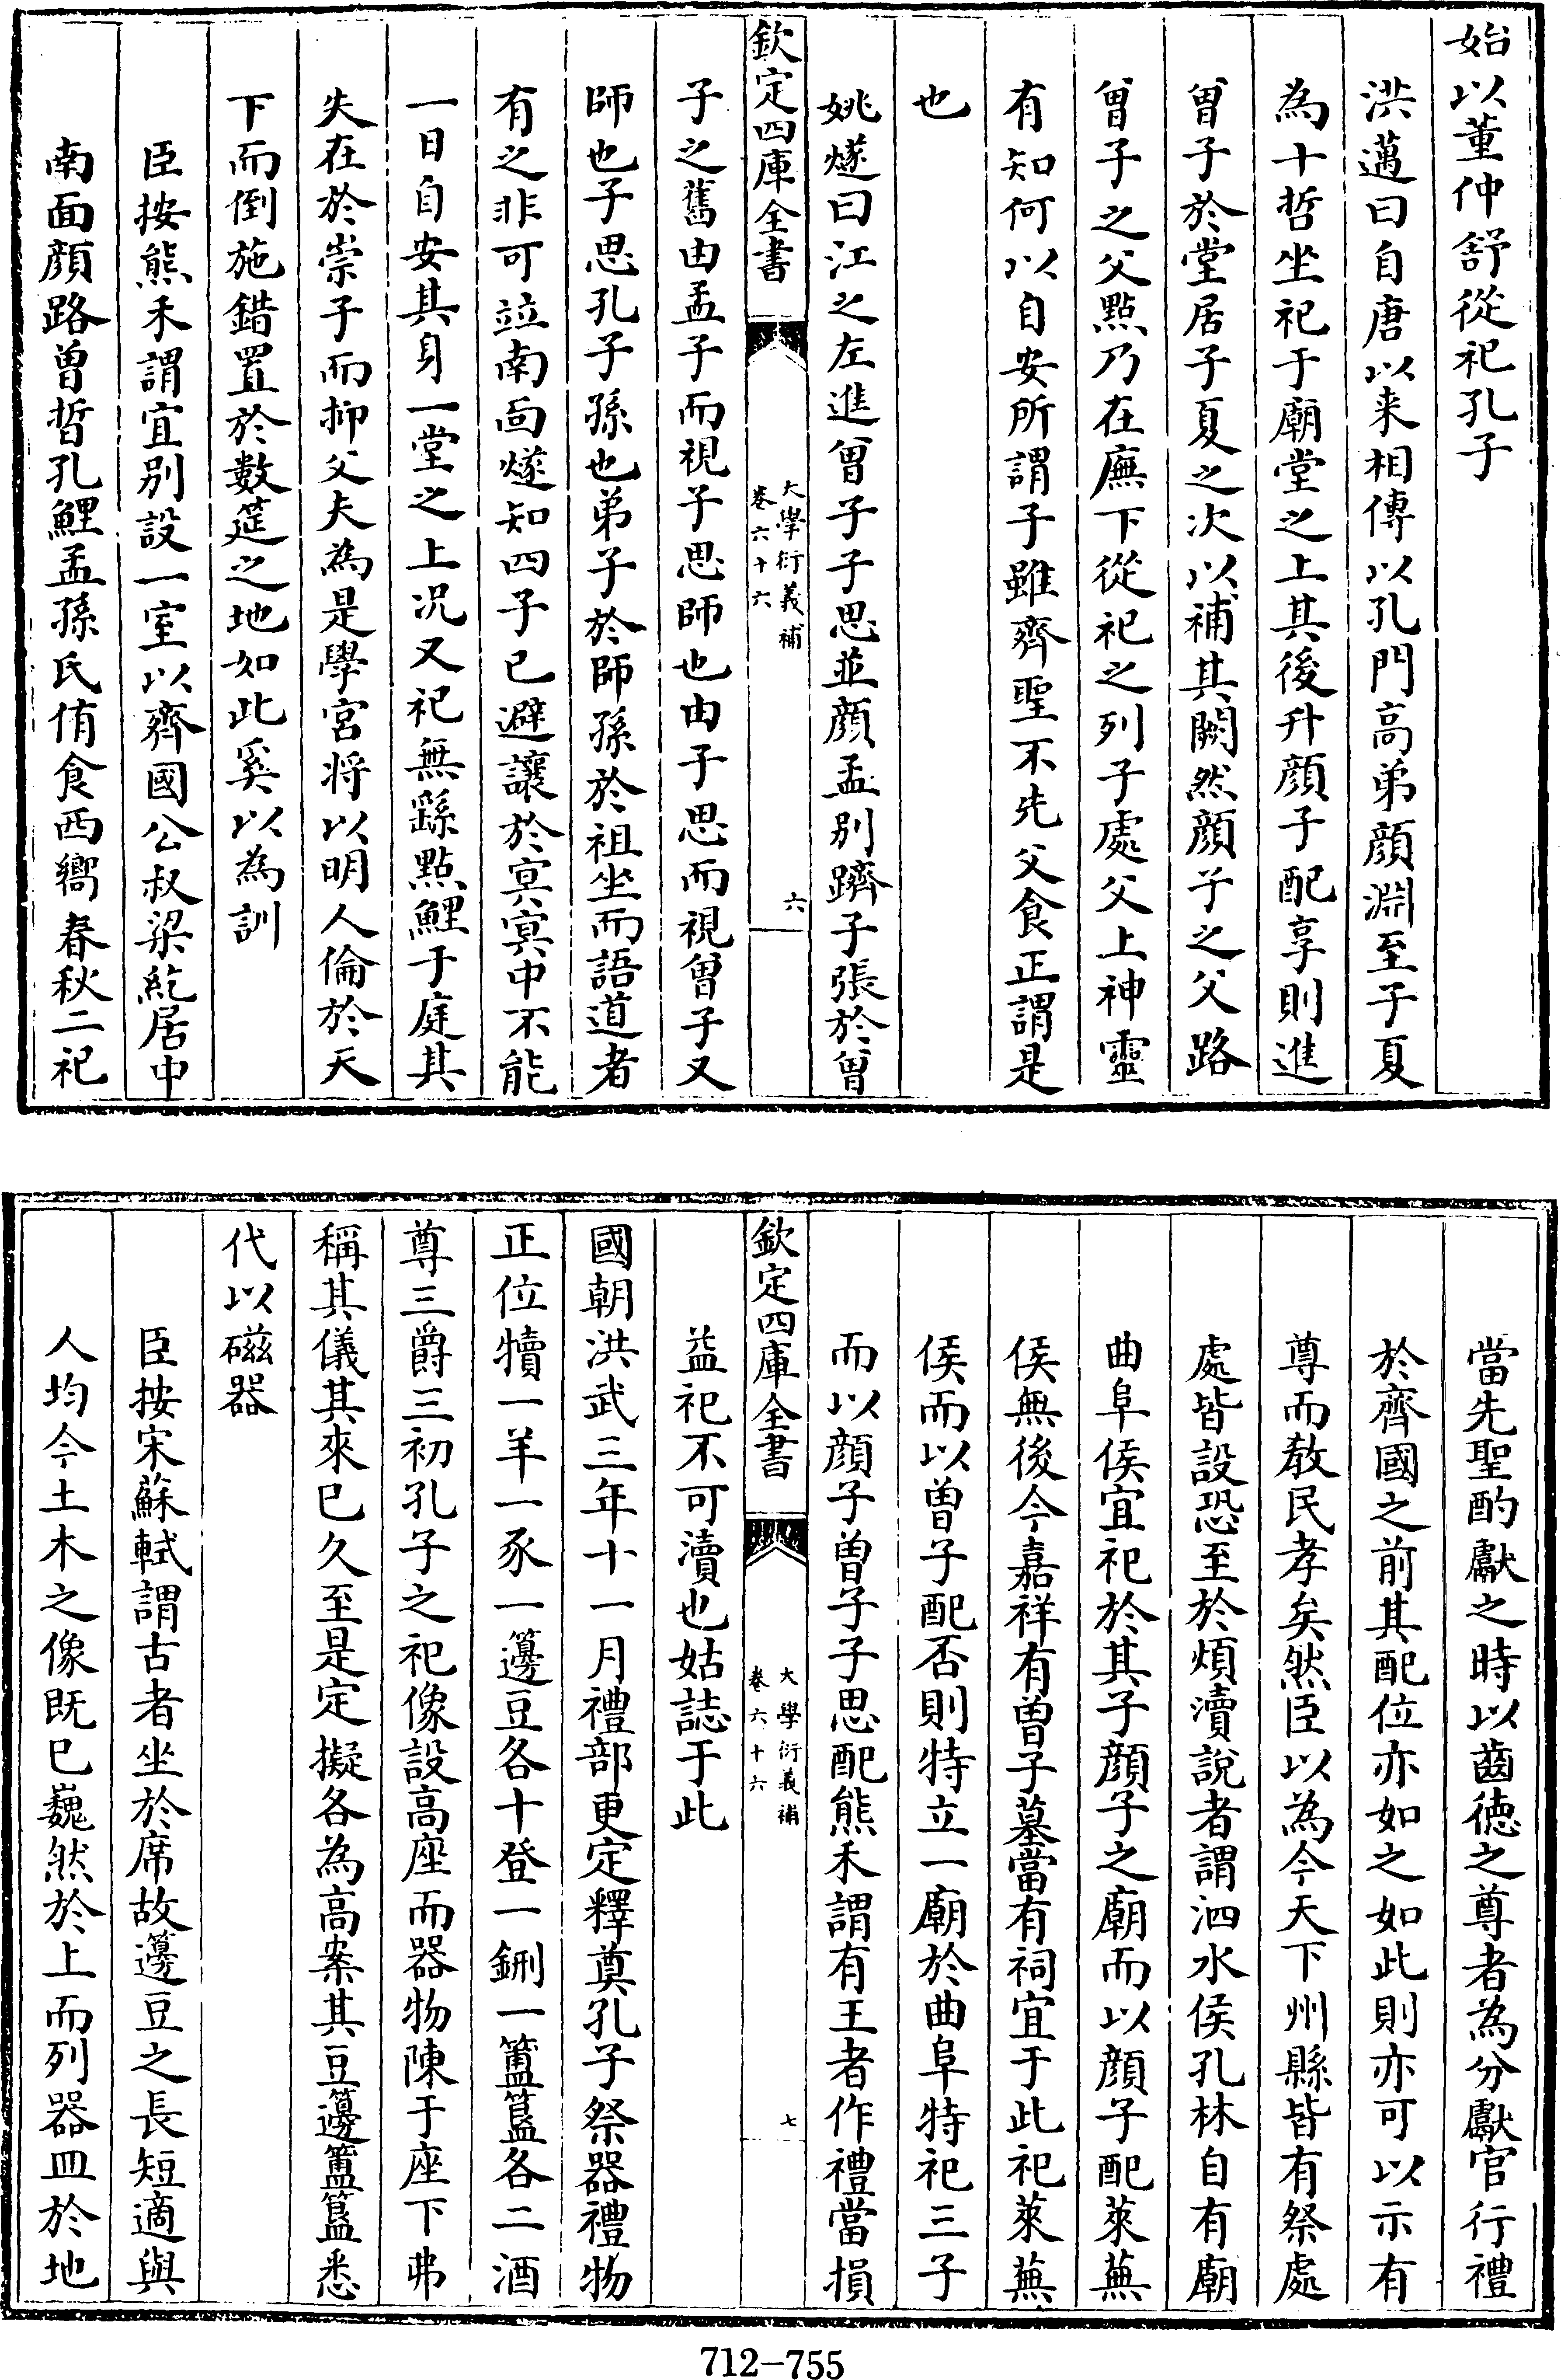 始以董仲舒從祀孔子
洪邁曰自唐以来相傳以孔門高弟顔淵至子夏
為十哲坐祀于廟堂之上其後升顔子配享則進
曾子於堂居子夏之次以補其闕然顔子之父路
曾子之父點乃在廡下從祀之列子處父上神靈
有知何以自安所謂子雖齊聖不先父食正謂是
也
姚燧曰江之左進曾子子思並顔孟别躋子張於曾
欽定四庫全書
大學衍義補
卷六十六
六
子之舊由孟子而視子思師也由子思而視曾子又
師也子思孔子孫也弟子於師孫於祖坐而語道者
有之非可竝南面燧知四子已避讓於冥冥中不能
一日自安其身一堂之上况又祀無繇點鯉于庭其
失在於崇子而抑父夫為是學宮将以明人倫於天
下而倒施錯置於數筵之地如此奚以為訓
臣按熊禾謂宜别設一室以齊國公叔梁紇居中
南面顔路曾晳孔鯉孟孫氏侑食西嚮春秋二祀
當先聖酌獻之時以齒徳之尊者為分獻官行禮
於齊國之前其配位亦如之如此則亦可以示有
尊而教民孝矣然臣以為今天下州縣皆有祭處
處皆設恐至於煩瀆說者謂泗水侯孔林自有廟
曲阜侯宜祀於其子顔子之廟而以顔子配萊蕪
侯無後今嘉祥有曾子墓當有祠宜于此祀萊蕪
侯而以曾子配否則特立一廟於曲阜特祀三子
而以顔子曾子子思配熊禾謂有王者作禮當損
欽定四庫全書
大學衍義補
卷六十六
七
益祀不可瀆也姑誌于此
國朝洪武三年十一月禮部更定釋奠孔子祭器禮物
正位犢一羊一豕一籩豆各十登一鉶一簠簋各二酒
尊三爵三初孔子之祀像設高座而器物陳于座下弗
稱其儀其來已久至是定擬各為高案其豆籩簠簋悉
代以磁器
臣按宋蘇軾謂古者坐於席故籩豆之長短適與
人均今土木之像既已巍然於上而列器皿於地
712-755